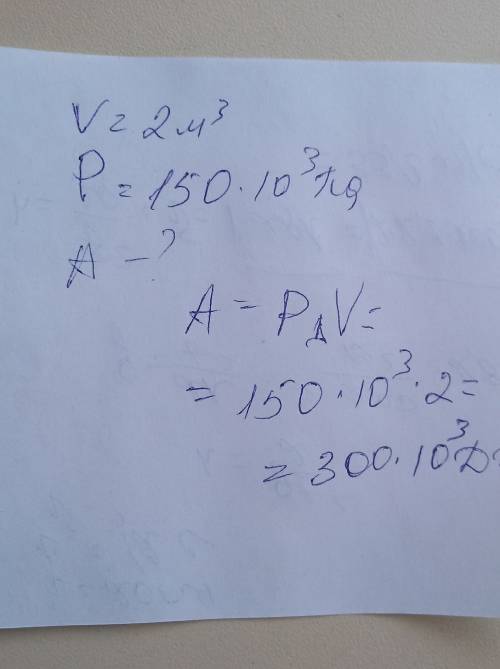 V = 2 м³
P = 150 · 10³ Па
A - ?
A = PΔV =
= 150 · 10³ · 2 =
= 300 · 10³ Д